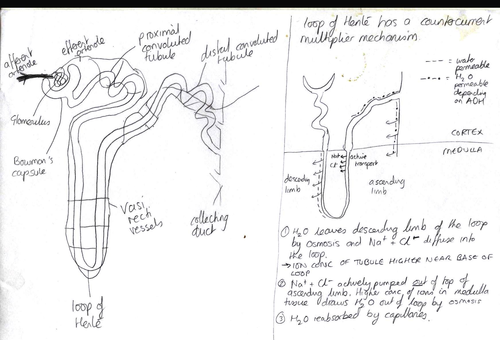 afferent
arteriole
efferent arteriole
proximal
convoluted
tubule
distal convoluted
tubule
Glomerulus
Bowman's
capsule
Vasi
recti
vessels
collecting
duct
loop of
Henlé
loop of Henlé has a countercurrent
multiplier mechanism.
--- = water
permeable
-·-· = H2O
permeable
depending
on ADH
CORTEX
MEDULLA
Na+
Cl-
active
transport
descending
limb
ascending
limb
① H2O leaves descending limb of the loop
by osmosis and Na+ + Cl- diffuse into
the loop.
→ ION CONC OF TUBULE HIGHER NEAR BASE OF
LOOP
② Na+ + Cl- actively pumped out of top of
ascending limb. Higher conc of ions in medulla
tissue draws H2O out of loop by osmosis
③ H2O reabsorbed by capillaries.